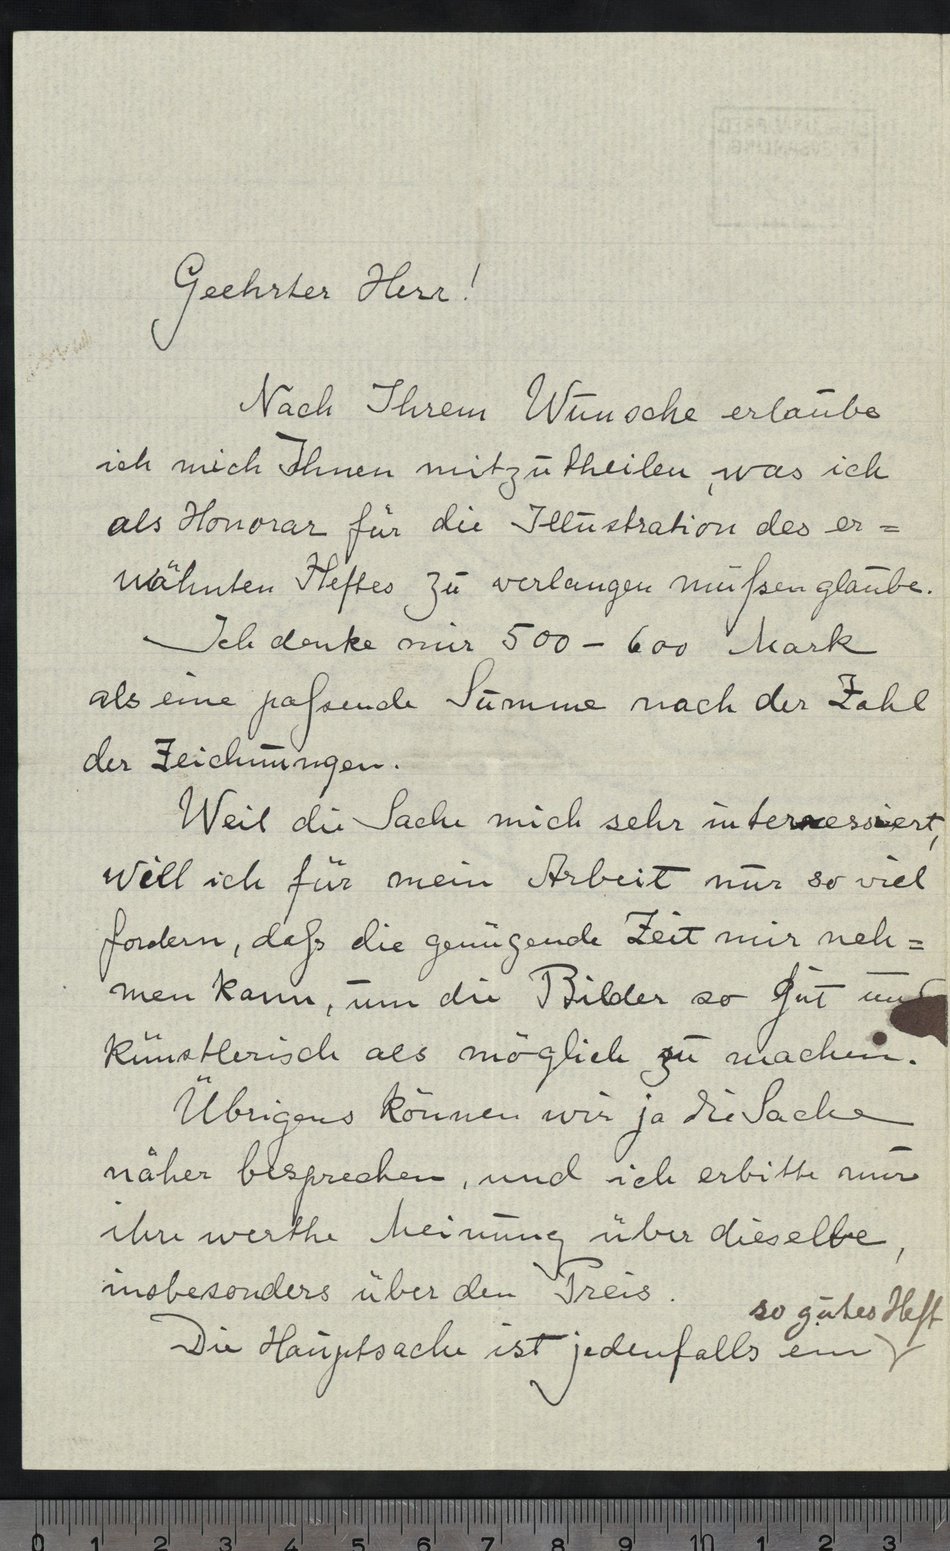 Geehrter Herr!
Nach Ihrem Wunsche erlaube
ich mich Ihnen mitzutheilen, was ich
als Honorar für die Illustration des er=
wähnten Heftes zu verlangen müssen glaube.
Ich denke mir 500 – 600 Mark
als eine passende Summe nach der Zahl
der Zeichnungen.
Weil die Sache mich sehr interressiert,
will ich für mein Arbeit nur so viel
fordern, dass die genügende Zeit mir neh=
men kann, um die Bilder so gut und
künstlerisch als möglich zu machen.
Übrigens können wir ja die Sache
näher besprechen, und ich erbitte nur
ihre werthe Meinung über dieselbe,
insbesonders über den Preis.
so gutes Heft
Die Hauptsache ist jedenfalls ein
0 1 2 3 4 5 6 7 8 9 10 1 2 3